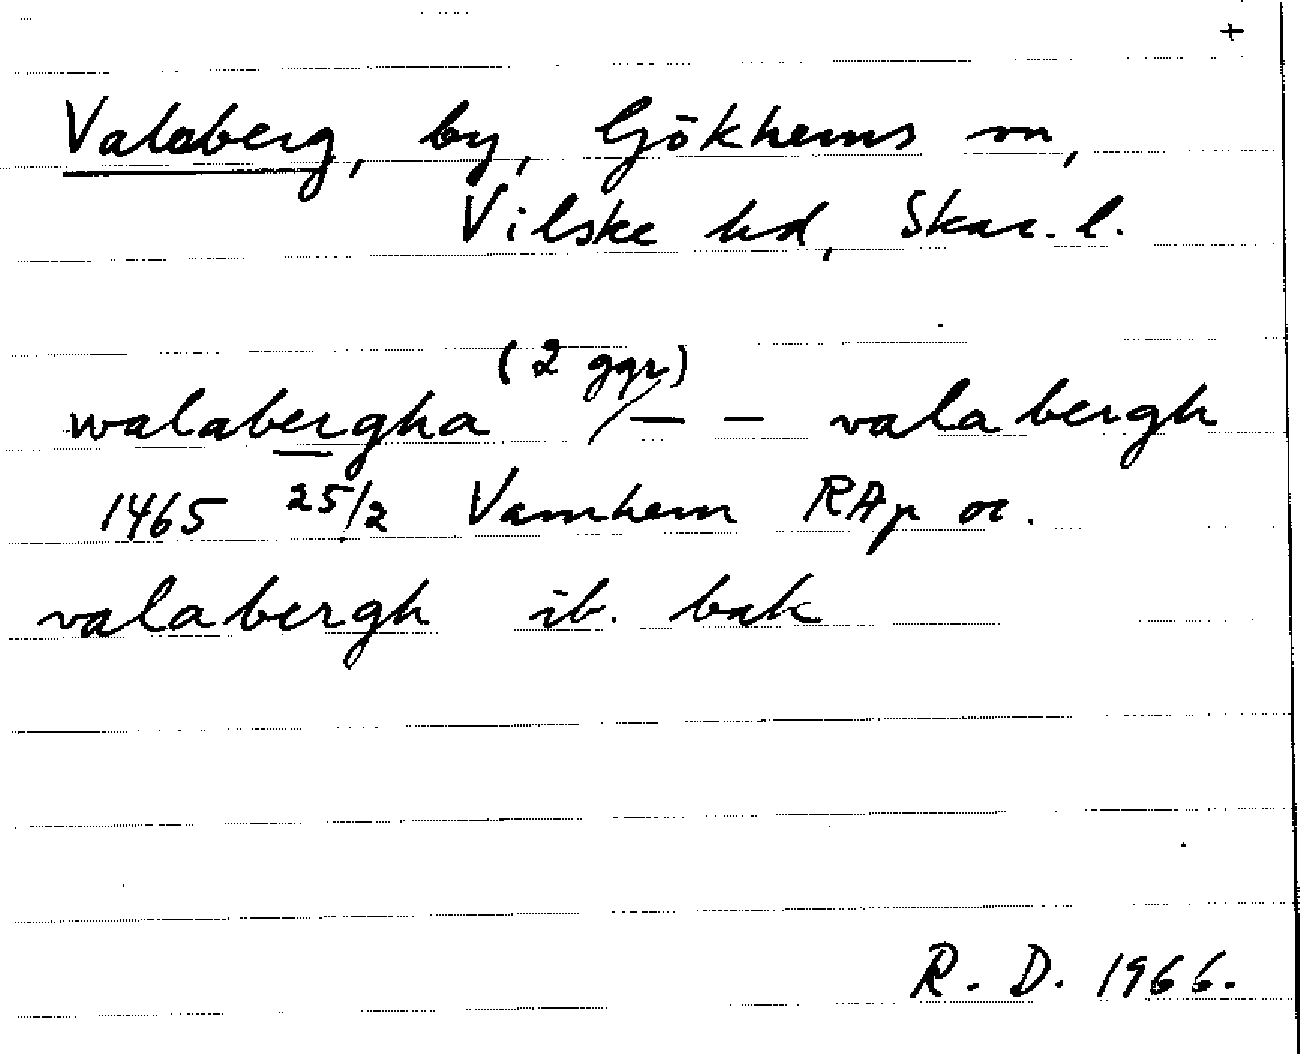 +
Valaberg, by, Gökhems sn,
Vilske hd, Skar. l.
(2 ggr)
walabergha /— — valabergh
1465 25/2 Varnhem RAp or.
valabergh ib. bak
R. D. 1966.